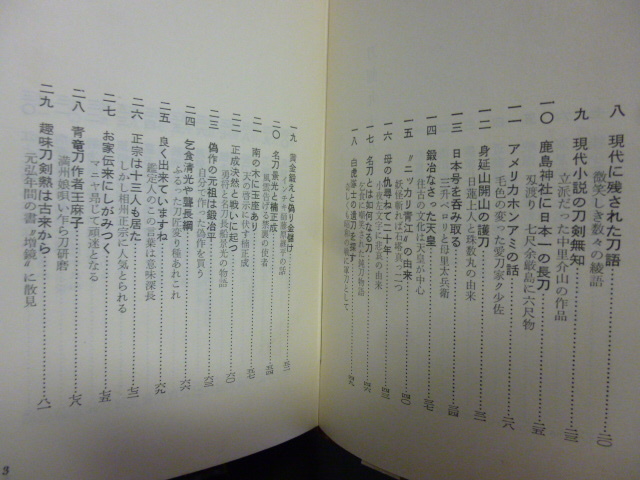 八 現代に残された刀語……二〇
微笑しき数々の綾語
九 現代小説の刀剣無知……二三
立派だった中里介山の作品
一〇 鹿島神社に日本一の長刀……二五
刃渡り 七尺余厳島に六尺物
一一 アメリカホンアミの話……二八
毛色の変った愛刀家〃少佐
一二 身延山開山の護刀……三一
日蓮上人と珠数丸の由来
一三 日本号を呑み取る……三四
三升ペロリと母里太兵衛
一四 鍛冶なさった天皇……三七
往古の名作は大皇が中心
一五 〝ニッカリ青江〟の由来
妖怪斬れば石燈籠二つ
一六 母の仇尋ねて二十年
一七 名刀とは如何なる刀
一八 白虎隊士の遺跡を弔う……四九
一九 黄金鍛えと偽り金儲け……五二
二〇 名刀景光と楠正成……五四
風雲をよぶ悲調の使者
二一 南の木に玉座あり……五七
天の啓示に伏す楠正成
二二 正成決然と戦いに起つ……六〇
勇将と名刀小竜景光の物語
二三 偽作の元祖は鍛冶平……六三
自分で作った偽作を買う
二四 乞食清光や聾長綱……六六
ふるった刀匠変り種あれこれ
二五 良く出来ていますね……六九
鑑定人のこの言葉は意味深長
二六 正宗は十三人も居た……七二
しかし相州正宗に人気とられる
二七 お家伝来にしがみつく……七五
マニヤ昂じて頑迷となる
二八 青竜刀作者王麻子……七八
満州娘唄い乍ら刀研磨
二九 趣味刀剣熱は古来から……八一
元弘年間の書〝増鏡〟に散見
3